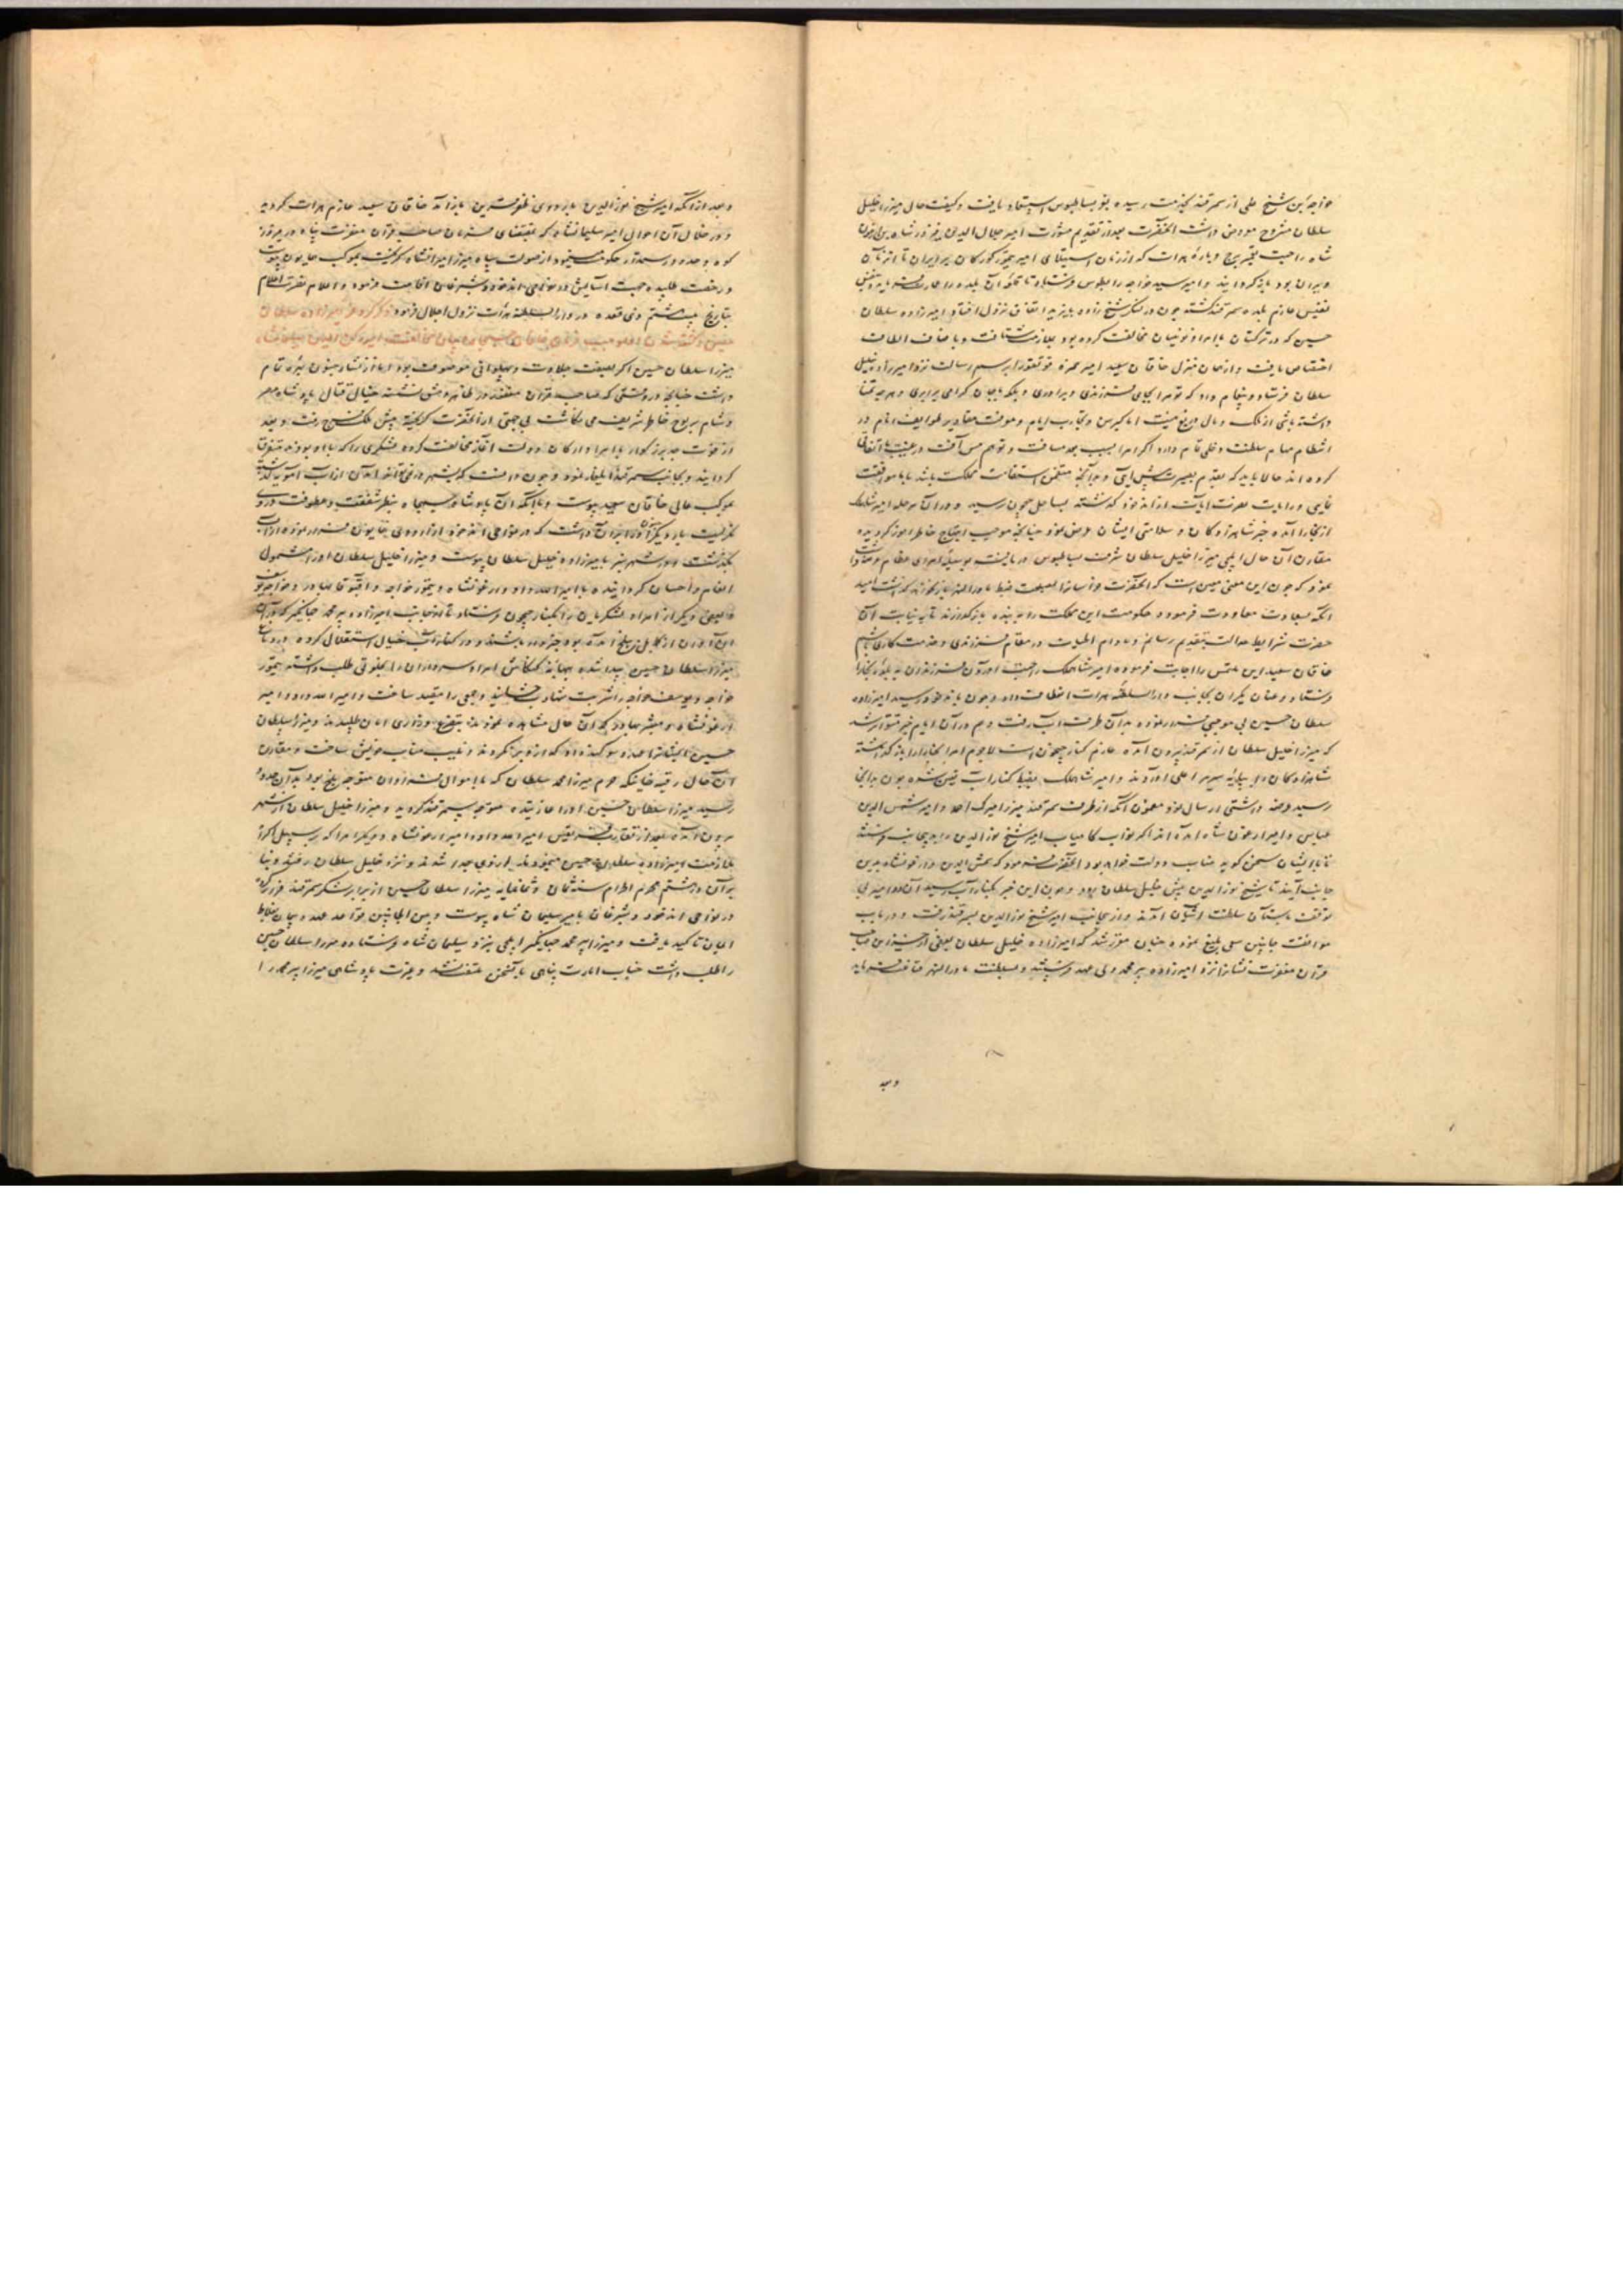 خواجه بن شیخ علی از سمرقند بخدمت رسیده بعز بساطبوس استسعاد یافت و کیفیت حال میرزا خلیل
سلطان مشروح معروض داشت آنحضرت بعد از تقدیم مشورت امیر جلال الدین فیروزشاه بن ارغون
شاه را جهت تعمیر برج و باره هرات که از زمان استیلای امیر تیمور کورکان بر ایران تا آن زمان
ویران بود بازگردانید و امیر سید خواجه را بطوس فرستاد تا قلعه آن بلده را عمارت فرماید و بنفس
نفیس عازم بلده سمرقند گشته چون در لنگر شیخ زاده بایزید اتفاق نزول افتاد امیرزاده سلطان
حسین که در ترکستان با امرا و نوئینان مخالفت کرده بود بملازمت شتافت و باصناف الطاف
اختصاص یافت و از همان منزل خاقان سعید امیر حمزه قوتقو را برسم رسالت نزد امیرزاده خلیل
سلطان فرستاد و پیغام داد که تو مرا بجای فرزندی و برادری و بلکه بجان گرامی برابری و هرچه تمنا
داشته باشی از ملک و مال دریغ نیست اما کبر سن و تجارب ایام و معرفت مقادیر طوایف انام در
انتظام مهام سلطنت دخلی تمام دارد اگر امرا بسبب بعد مسافت و توهم مس آفت در غیبت ما اتفاقی
کرده اند حالا باید که بقدم بصیرت پیش آیی و بدآنچه متضمن استقامت مملکت باشد با ما موافقت
نمایی و رایات نصرت آیات از اندخود گذشته بساحل جیحون رسید و در آن مرحله امیر شاهملک
از بخارا آمده خبر شاهزادگان و سلامتی ایشان عرض نمود چنانچه موجب ابتهاج خاطر انور گردیده
مقارن آن حال ایلچی میرزا خلیل سلطان شرف بساطبوس دریافت بوسیله امرای عظام عرضه داشت
نمود که چون این معنی معین است که آنحضرت خراسان را بمصلحت ضبط ماوراءالنهر باز نخواهد گذاشت امید
آنکه بسعادت معاودت فرموده حکومت این مملکت را به بنده بازگذارند تا به نیابت آن
حضرت شرایط عدالت بتقدیم رسانم و مادام الحیات در مقام فرزندی و خدمت کاری باشم
خاقان سعید این ملتمس را اجابت فرموده امیر شاهملک را جهت آوردن فرزندان به بلده بخارا
فرستاد و عنان یکران بجانب دارالسلطنه هرات انعطاف داد و چون باندخود رسید امیرزاده
سلطان حسین بی موجبی فرار نموده بدآن طرف آب رفت و هم در آن ایام خبر متواتر شد
که میرزا خلیل سلطان از سمرقند بیرون آمده عازم کنار جیحون است لاجرم امرا بخارا را بازگذاشته
شاهزادگان را بپایه سریر اعلی آوردند و امیر شاهملک بضبط کنار آب تعیین شده چون بدآنجا
رسید عرضه داشتی ارسال نمود مضمون آنکه از طرف سمرقند میرزا میرک احمد و امیر شمس الدین
عباس و امیر ارغون شاه آمده اند اگر نواب کامیاب امیر شیخ نورالدین را بدینجانب فرستند
تا با ایشان سخن گوید مناسب دولت خواهد بود آنحضرت فرمود که شمس الدین و ارغونشاه بدین
جانب آیند تا شیخ نورالدین پیش خلیل سلطان رود و چون این خبر بکنار آب رسید آن دو امیر بی
توقف بآستان سلطنت آشیان آمدند و از اینجانب امیر شیخ نورالدین بسمرقند رفت و در باب
موافقت جانبین سعی بلیغ نموده چنان مقرر شد که امیرزاده خلیل سلطان بعضی از خزاین صاحب
قران مغفرت نشان را نزد امیرزاده پیر محمد ولی عهد فرستد و بسلطنت ماوراءالنهر قناعت فرماید
وبعد
وبعد از آنکه امیر شیخ نورالدین باردوی ظفر قرین باز آمد خاقان سعید عازم هرات گردید
و در خلال آن احوال امیر سلیمانشاه که بمقتضای فرمان صاحب قران مغفرت پناه در فیروز
کوه و حدود رستمدار حکومت مینمود از صولت سپاه میرزا میرانشاه گریخته بموکب همایون پیوست
و رخصت طلبیده جهت آسایش در نواحی اندخود و شبرغان اقامت فرمود و اعلام نصرت اعلام
بتاریخ بیست و هشتم ذی قعده در دارالسلطنه هرات نزول اجلال فرمود ذکر گریختن امیرزاده سلطان
حسین و کشته شدن او بموجب فرمان خاقان جم‌جاه و بیان مخالفت امیر رکن الدین سلیمانشاه
میرزا سلطان حسین اگرچه بصفت جلادت و پهلوانی موصوف بود اما از نشاء جنون بهره تمام
داشت چنانچه در وقتی که صاحب قران مغفور در ظاهر دمشق نشسته خیال قتال پادشاه مصر
و شام بر لوح خاطر شریف می نگاشت بی جهتی از آنحضرت گریخته پیش ملک فرج رفت و بعد
از فوت جد بزرگوار با امرا و ارکان دولت آغاز مخالفت کرده لشکری را که با او بودند متفرق
گردانید و بجانب سمرقند ایلغار نمود و چون دانست که بشهر در نمی تواند آمدن از آب آمویه گذشته
بموکب عالی خاقان سعید پیوست و با آنکه آن پادشاه جم‌جاه بنظر شفقت و عطوفت در وی
نگریست بار دیگر جنون او را بر آن داشت که در نواحی اندخود از اردوی همایون فرار نموده از آب
بگذشت و در شهر سبز با میرزاده خلیل سلطان پیوست و میرزا خلیل سلطان او را مشمول
انعام و احسان گردانیده با امیر الله داد و ارغونشاه و تیمور خواجه اقبوقا بهادر و خواجه یوسف
و بعضی دیگر از امرا و لشکریان را بکنار جیحون فرستاد تا از جانب امیرزاده پیر محمد جهانگیر که در آن
آوان از کابل ببلخ آمده بود خبردار باشند و در کنار آب خیال استقلال کرده در دماغ
میرزا سلطان حسین پیدا شده ببهانه کنکاش امرا و سرداران را بخلوتی طلب داشته تیمور
خواجه و یوسف خواجه را شربت شهادت چشانید و جمعی را مقید ساخت و امیر الله داد و امیر
ارغونشاه و مبشر بهادر که آن حال مشاهده نمودند بتضرع و زاری امان طلبیدند و میرزا سلطان
حسین ایشانرا عهد و سوگند داد که از و برنگردند و نایب مناب خویش ساخت و مقارن
آن حال رقیه خانیکه حرم میرزا محمد سلطان که با اموال فراوان متوجه بلخ بود بدآن حدود
رسید میرزا سلطان حسین او را غارتیده متوجه سمرقند گردید و میرزا خلیل سلطان از شهر
بیرون آمده بعد از تقارب فریقین امیر الله داد و امیر ارغونشاه و دیگر امرا که بر سبیل اکراه
ملازمت امیرزاده سلطان حسین مینمودند از وی جدا شدند و نزد خلیل سلطان رفتند و بنا
بر آن در هشتم محرم الحرام سنه ثمان و ثمانمایه میرزا سلطان حسین از برابر لشکر سمرقند فرار کرده
در نواحی اندخود و شبرغان بامیر سلیمان شاه پیوست و بین الجانبین قواعد عهد و پیمان بغلاظ
ایمان تاکید یافت و میرزا پیر محمد جهانگیر ایلچی نزد سلیمان شاه فرستاده میرزا سلطان حسین
را طلب داشت جناب امارت پناهی بآن سخن ملتفت نشد و عزت پادشاهی میرزا پیر محمد را